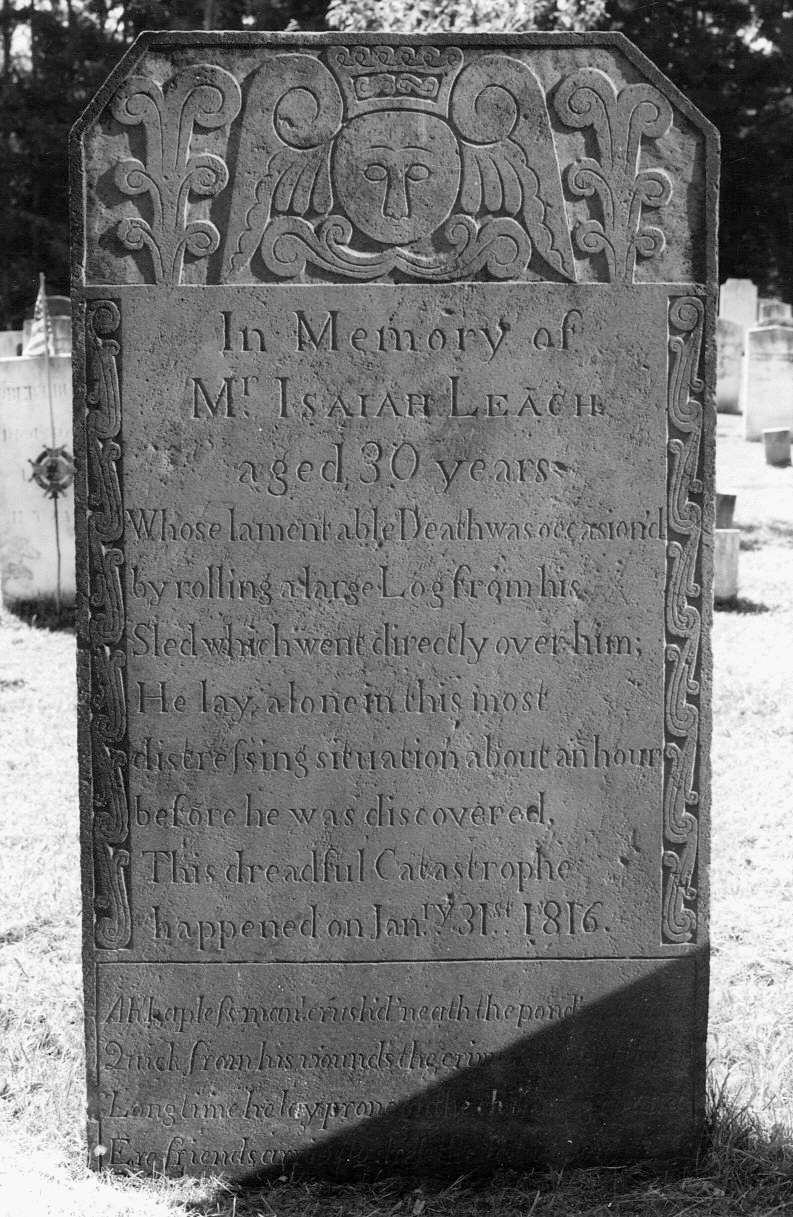 In Memory of
Mr. ISAIAH LEACH.
aged, 30 years
Whose lamentable Death was occasion'd
by rolling a large Log from his
Sled which went directly over him;
He lay, alone in this most
distreſsing situation about an hour
before he was discovered,
This dreadful Catastrophe
happened on Jan.ry 31st. 1816.
Ah hapleſs man! crush'd 'neath the pond'
Quick from his wounds the
Long time he lay prone
Ere friends